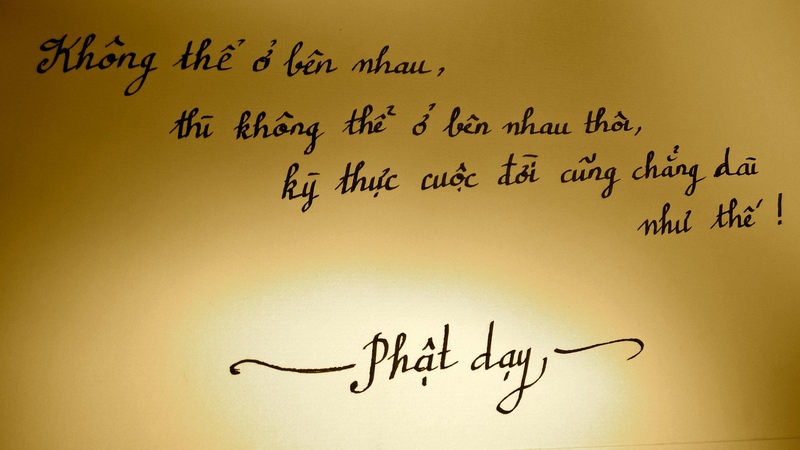 Không thể ở bên nhau,
thì không thể ở bên nhau thôi,
kỳ thực cuộc đời cũng chẳng dài
như thế !
Phật dạy,